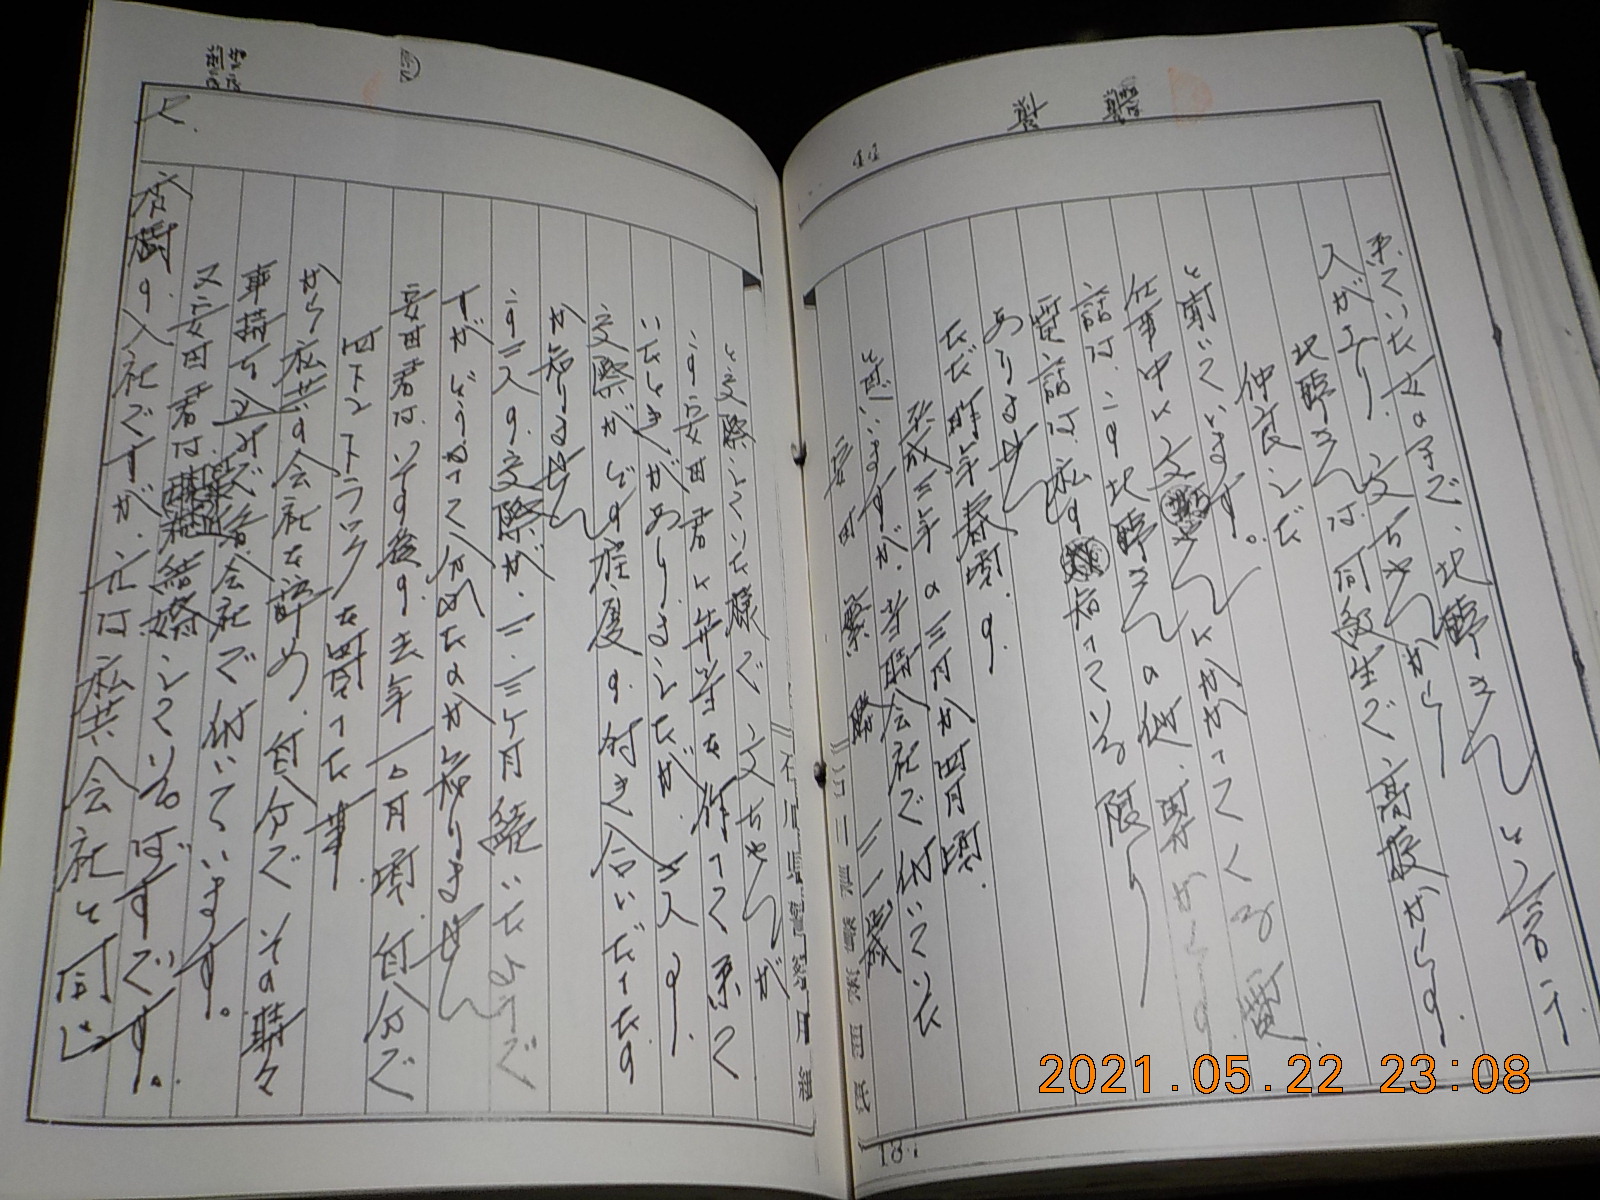 来ていた女の子で、北野さんと言う
人がおり、文ちゃんから
北野さんは、同級生で、高校からの
仲良しだ
と聞いています。
仕事中に文さんにかかってくる電
話は、この北野さんの他、男からの
電話は、私の知っている限り
ありません
ただ昨年春頃の、
平成三年の三月か四月頃、
と思いますが、当時会社で働いていた
安田繁勝 三一歳
と交際していた様で文ちゃんが
この安田君に弁当を作って来て
いたときがありましたが、二人の、
交際がどの程度の付き合いだったの
か知りません
この二人の交際が、二、三ヶ月続いたようで
すがどうなって分かれたのか知りません
安田君は、その後の、去年一〇月頃、自分で
四トントラックを買った事
から私共の会社を辞め、自分でその時々
車持ち込みで、会社で働いています。
又安田君は結婚しているはずです。
の入社ですが、元は私共会社と同じ
石川県警察
2021.05.22 23:08